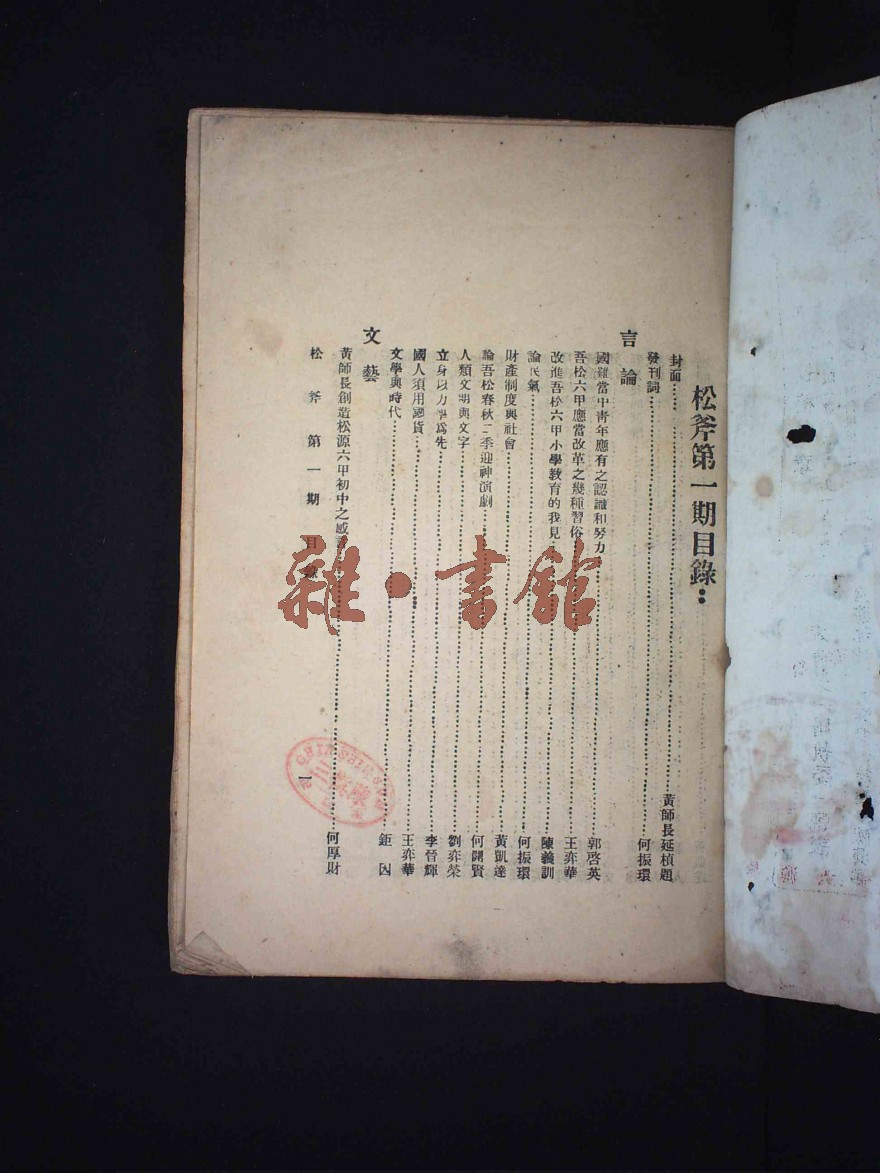 松斧第一期目錄：
封面……黃師長延楨題
發刊詞……何振環
言論
國難當中青年應有之認識和努力……郭啓英
吾松六甲應當改革之幾種習俗……王弈華
改進吾松六甲小學教育的我見……陳義訓
論民氣……何振環
財產制度與社會……黃凱達
論吾松春秋二季迎神演劇……何開賢
人類文明與文字……劉弈榮
立身以力學爲先……李晉輝
國人須用國貨……王弈華
文學與時代……鉅因
文藝
黃師長創造松源六甲初中之感言……何厚財
松斧第一期目錄
一
雜·書館